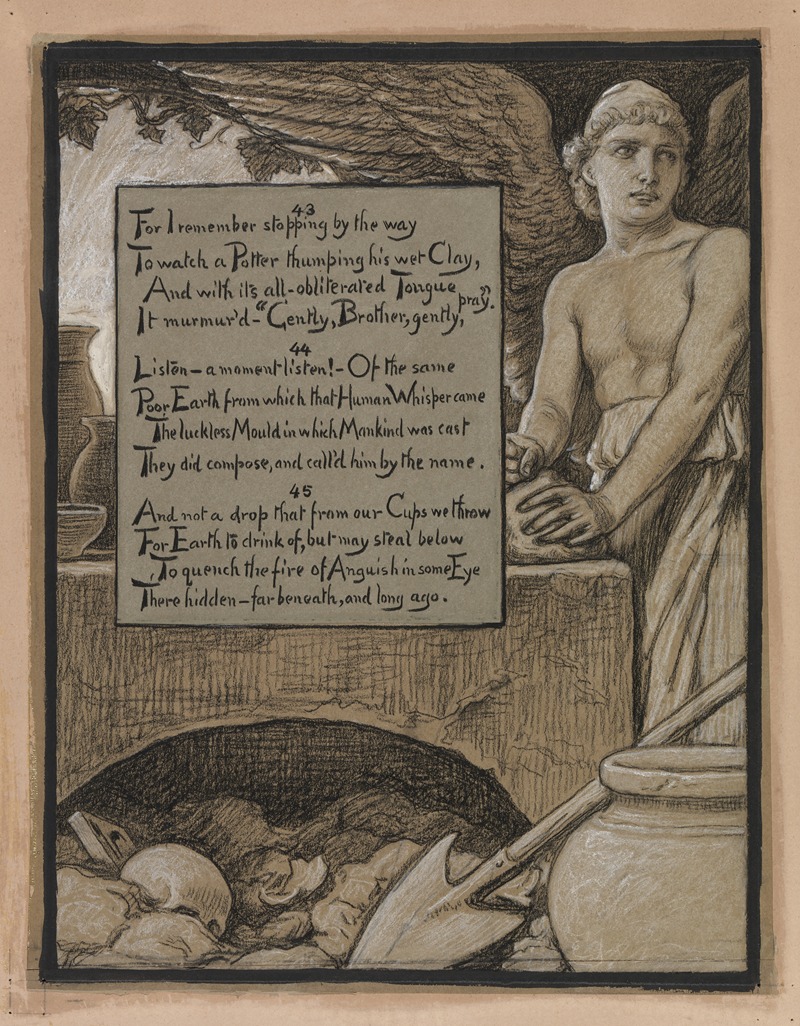 43
For I remember stopping by the way
To watch a Potter thumping his wet Clay,
And with its all-obliterated Tongue
It murmur'd-"Gently, Brother, gently, pray".
44
Listen-a moment listen!-Of the same
Poor Earth from which that Human Whisper came
The luckless Mould in which Mankind was cast
They did compose, and call'd him by the name.
45
And not a drop that from our Cups we throw
For Earth to drink of, but may steal below
To quench the fire of Anguish in some Eye
There hidden-far beneath, and long ago.